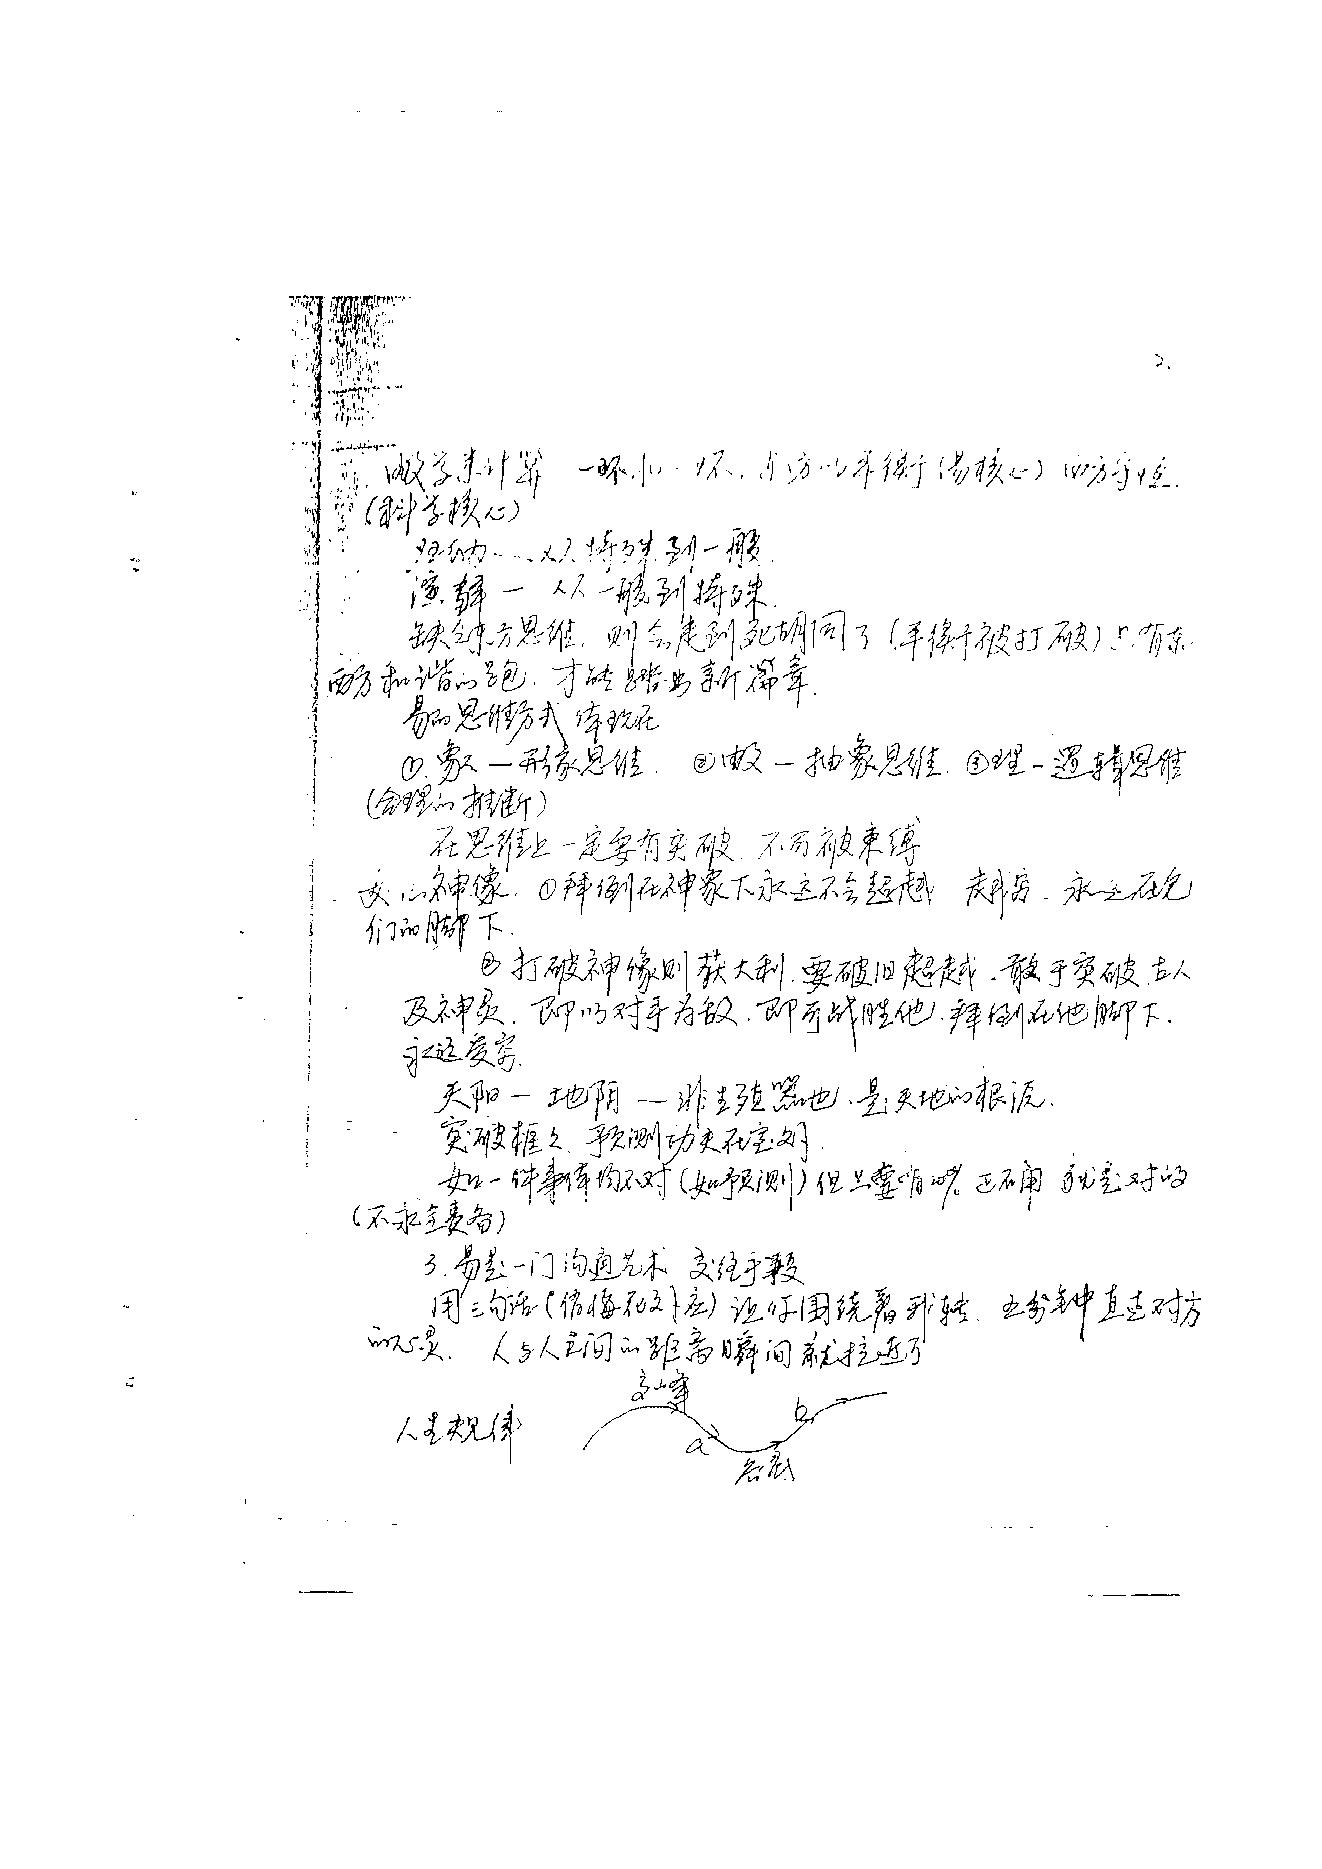 2.
数学来计算 一环扣一环，东方以平衡(易核心) 西方守恒.
(科学核心)
归纳--从特殊到一般.
演绎一 从一般到特殊.
缺乏东方思维，则会走到死胡同了(平衡被打破)只有东
西方和谐的跑，才能踏出新篇章.
易的思维方式体现在
①.象一形象思维. ②数一抽象思维. ③理一逻辑思维
(合理的推断)
在思维上一定要有突破，不可被束缚
神像. ①拜倒在神象下永远不会超越 永远在它
们的脚下.
② 打破神像则获大利，要破旧超越，敢于突破，古人
及神灵，即以对手为敌，即可战胜他，拜倒在他脚下.
永远受害.
天阳一 地阴 一非生殖器也，是天地的根源.
突破框框 预测功夫在
如一件事体均不对(如预测)但只要 就是对的
(不求全责备)
3.易是一门沟通艺术 交往手段
用三句话 让你围绕着我转，五分钟直击对方
的心灵. 人与人之间的距离瞬间就拉近了
高峰
人生规律
a
b
谷底